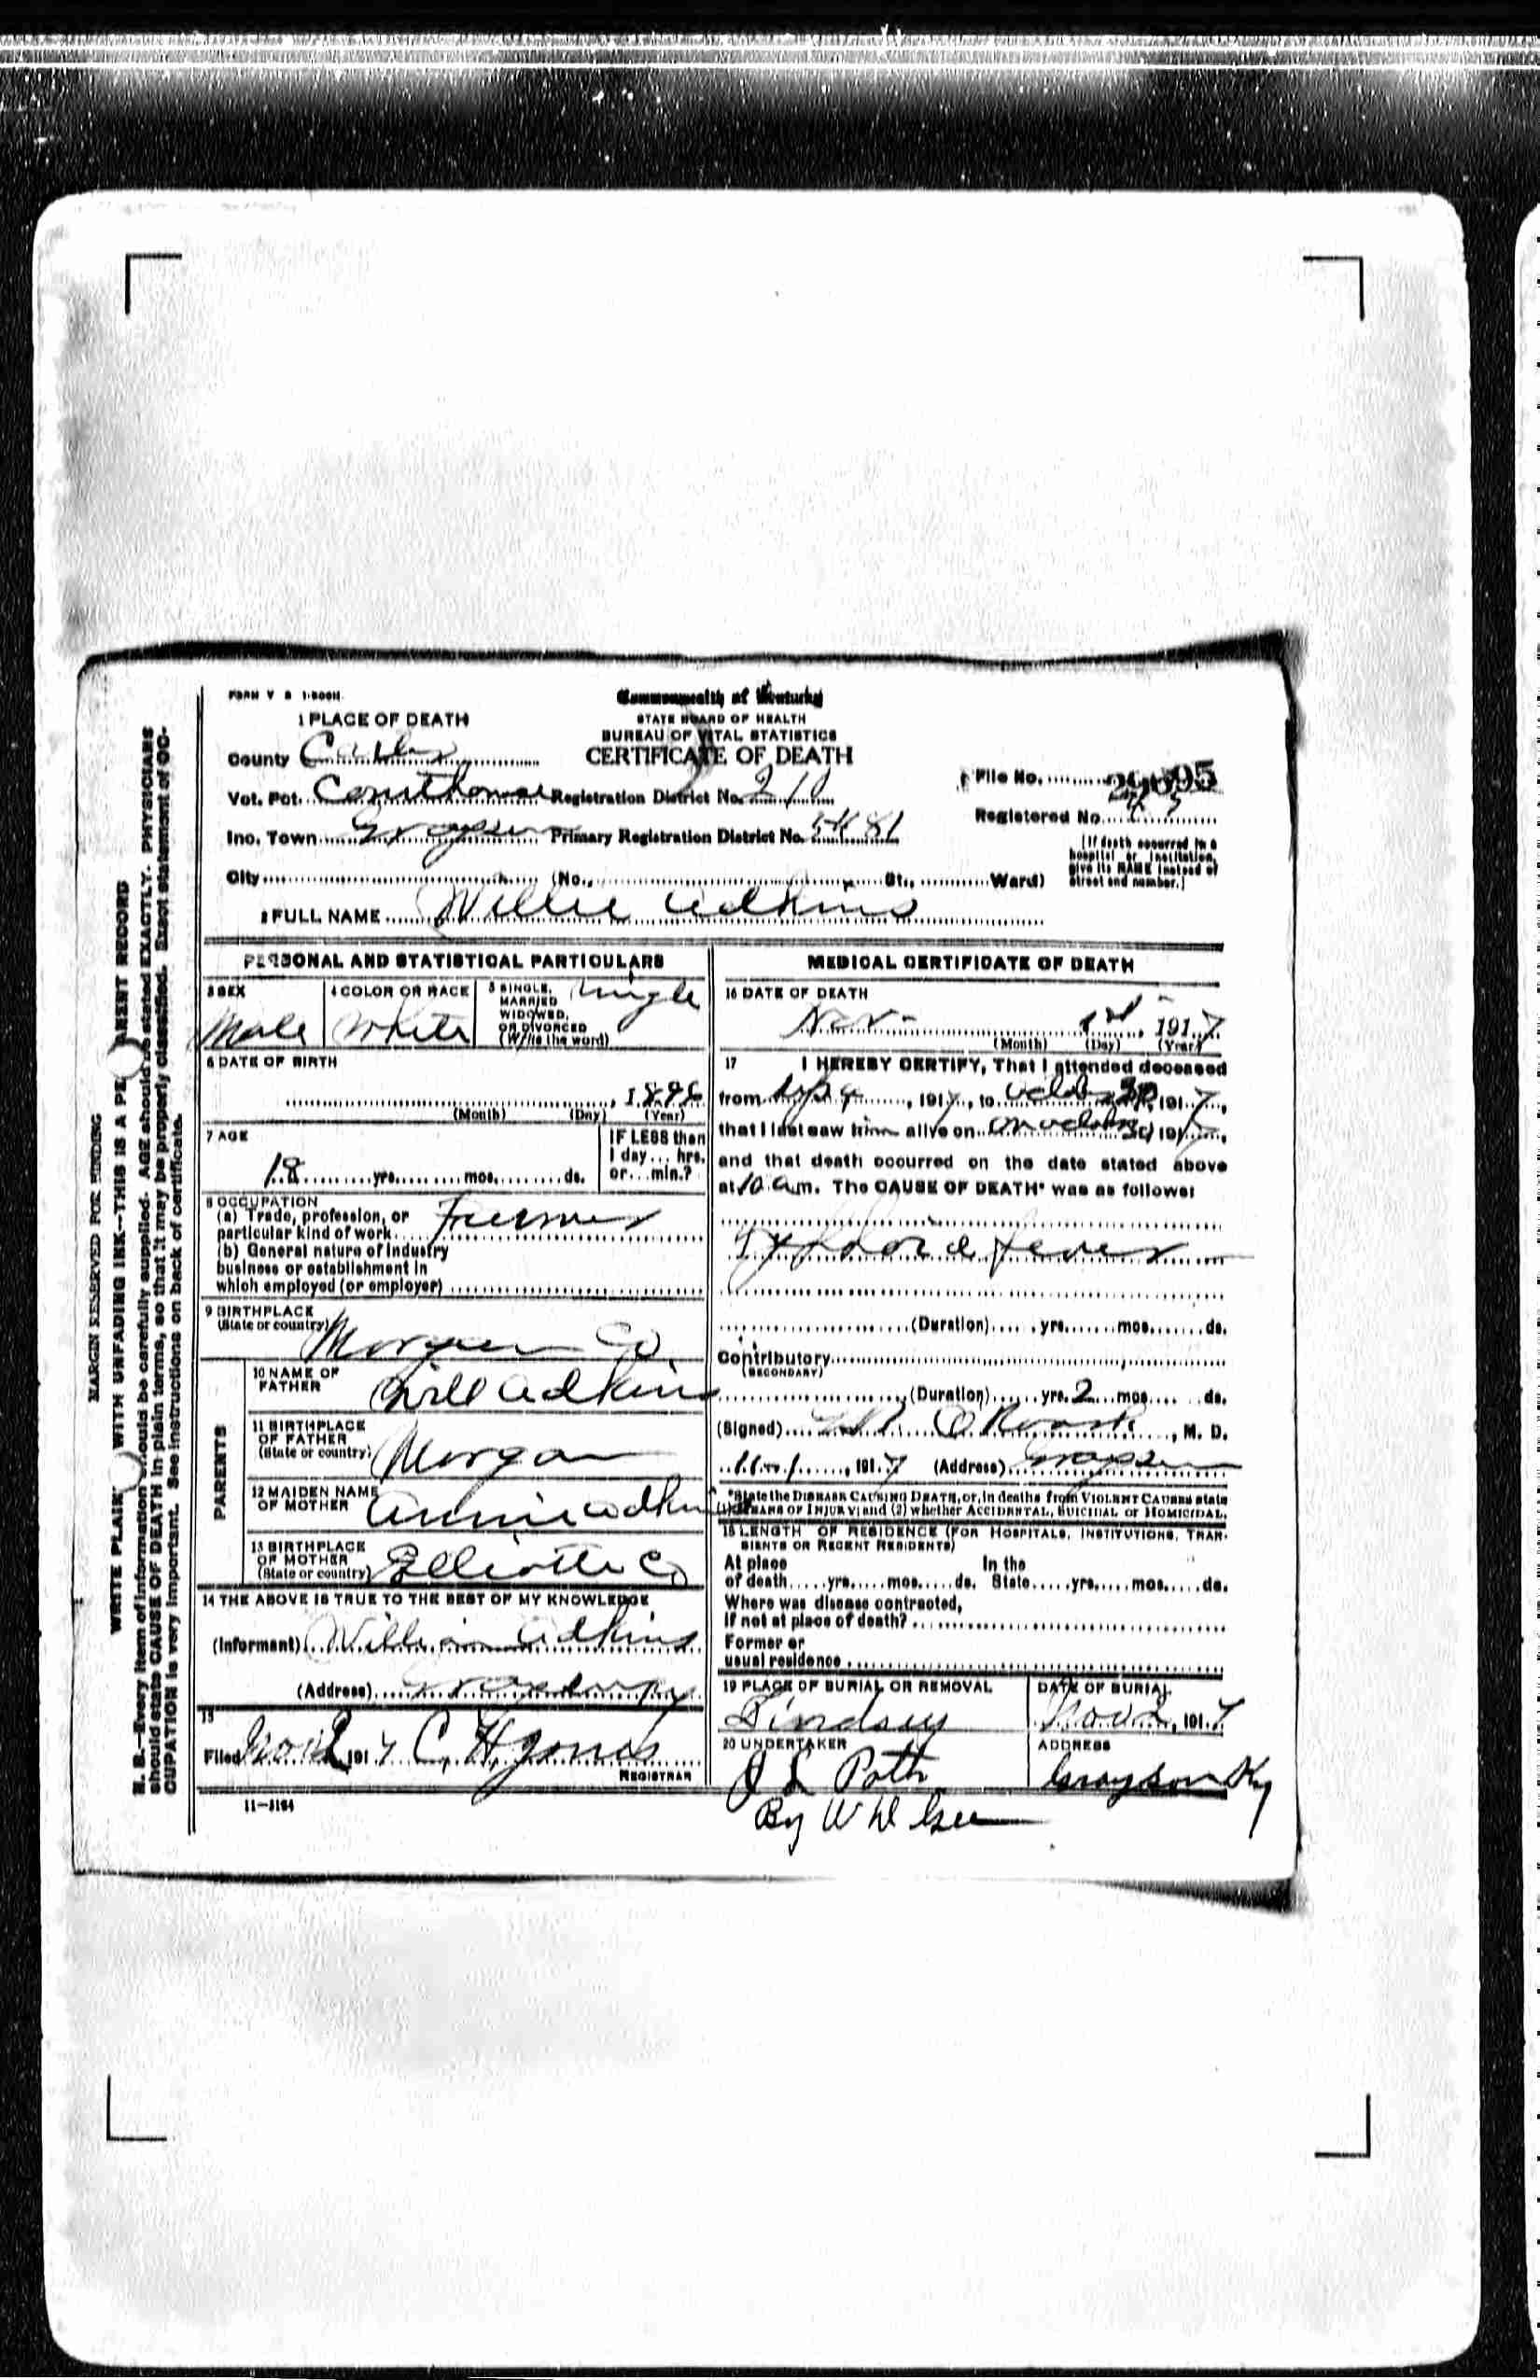 FORM V S 1-500M
Commonwealth of Kentucky
STATE BOARD OF HEALTH
BUREAU OF VITAL STATISTICS
CERTIFICATE OF DEATH
1 PLACE OF DEATH
County Carter
Vot. Pct. Courthouse Registration District No. 210
Inc. Town Grayson Primary Registration District No. 5481
City (No. St., Ward)
File No.
Registered No.
[If death occurred in a hospital or institution, give its NAME instead of street and number.]
2 FULL NAME Willie Adkins
PERSONAL AND STATISTICAL PARTICULARS
3 SEX
Male
4 COLOR OR RACE
White
5 SINGLE, MARRIED WIDOWED, OR DIVORCED (Write the word)
Single
6 DATE OF BIRTH
, 1898
(Month) (Day) (Year)
7 AGE
18 yrs. mos. ds.
IF LESS than 1 day... hrs. or... min.?
8 OCCUPATION
(a) Trade, profession, or particular kind of work Farmer
(b) General nature of industry business or establishment in which employed (or employer)
9 BIRTHPLACE (State or country) Morgan Co.
PARENTS
10 NAME OF FATHER Will Adkins
11 BIRTHPLACE OF FATHER (State or country) Morgan
12 MAIDEN NAME OF MOTHER Annie Adkins
13 BIRTHPLACE OF MOTHER (State or country) Elliotte Co
14 THE ABOVE IS TRUE TO THE BEST OF MY KNOWLEDGE
(Informant) William Adkins
(Address) Grayson Ky
15
Filed Nov 2 1917 C. H. Jones
REGISTRAR
11-3184
MEDICAL CERTIFICATE OF DEATH
16 DATE OF DEATH
Nov 1st, 1917
(Month) (Day) (Year)
17 I HEREBY CERTIFY, That I attended deceased
from , 1917, to 30, 1917,
that I last saw him alive on 1917,
and that death occurred on the date stated above
at 10 a.m. The CAUSE OF DEATH* was as follows:
Typhoid fever
(Duration) yrs. mos. ds.
Contributory
(SECONDARY)
(Duration) yrs. 2 mos. ds.
(Signed) , M. D.
11-1, 1917 (Address) Grayson
*State the DISEASE CAUSING DEATH, or, in deaths from VIOLENT CAUSES state
(1) MEANS OF INJURY; and (2) whether ACCIDENTAL, SUICIDAL or HOMICIDAL.
18 LENGTH OF RESIDENCE (FOR HOSPITALS, INSTITUTIONS, TRANSIENTS OR RECENT RESIDENTS)
At place of death yrs. mos. ds. In the State yrs. mos. ds.
Where was disease contracted,
If not at place of death?
Former or
usual residence
19 PLACE OF BURIAL OR REMOVAL
Lindsey
DATE OF BURIAL
Nov 2, 1917
20 UNDERTAKER
ADDRESS
Grayson Ky
MARGIN RESERVED FOR BINDING
WRITE PLAINLY WITH UNFADING INK--THIS IS A PERMANENT RECORD
N. B.--Every item of information should be carefully supplied. AGE should be stated EXACTLY. PHYSICIANS
should state CAUSE OF DEATH in plain terms, so that it may be properly classified. Exact statement of OC-
CUPATION is very important. See instructions on back of certificate.